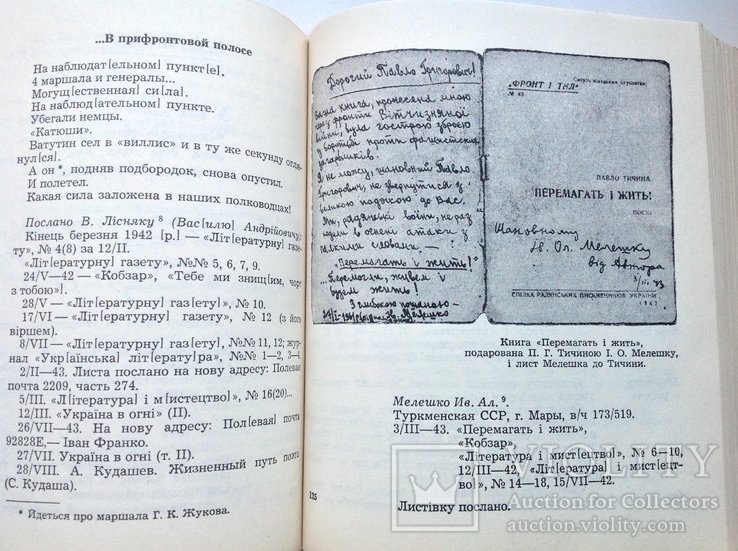 ...В прифронтовой полосе
На наблюдат[ельном] пункт[е].
4 маршала и генералы...
Могущ[ественная] си[ла].
На наблюд[ательном] пункте.
Убегали немцы.
«Катюши».
Ватутин сел в «виллис» и в ту же секунду огля-
нул[ся].
А он*, подняв подбородок, снова опустил.
И полетел.
Какая сила заложена в наших полководцах!
Послано В. Лісняку 8 (Вас[илю] Андрійовичу)
Кінець березня 1942 [р.] — «Літ[ературну] газе-
ту», № 4(8) за 12/II.
«Літ[ературну] газету», №№ 5, 6, 7, 9.
24/V—42 — «Кобзар», «Тебе ми знищ[им, чорт
з тобою»].
28/V — «Літ[ературну] газ[ету]», № 10.
17/VI — «Літ[ературну] газету», № 12 (з його
віршем).
8/VII — «Літ[ературну] газ[ету]», №№ 11, 12; жур-
нал «Укр[аїнська] літ[ерату]ра», №№ 1—2, 3—4.
2/II—43. Листа послано на нову адресу: Полевая
почта 2209, часть 274.
5/III. «Л[ітература] і м[истецтво]», № 16(20)...
12/III. «Україна в огні» (II).
26/VII—43. На нову адресу: Пол[евая] почта
92828Е,— Іван Франко.
27/VII. Україна в огні (т. II).
28/VIII. А. Кудашев. Жизненный путь поэта
(С. Кудаша).
* Йдеться про маршала Г. К. Жукова.
Дорогий Павло Григорович!
Ваша книга, пронесена мною
через фронти Вітчизняної
війни, була гострою зброєю
у боротьбі проти фашистських
загарбників.
Я не можу, шановний Павло
Григорович, не звернутися з
великою подякою до Вас.
Ми, радянські воїни, не раз
ходили в огнені атаки з
палкими словами —
„Перемагать і жить!"
Перемогли, живем і
будем жить!
З глибокою пошаною—
Мелешко
Смерть німецьким окупантам!
„ФРОНТ І ТИЛ"
№ 45
ПАВЛО ТИЧИНА
ПЕРЕМАГАТЬ І ЖИТЬ!
Шановному
Ів. Ол. Мелешку
від Автора
3/III 43
СПІЛКА РАДЯНСЬКИХ ПИСЬМЕННИКІВ УКРАЇНИ
1942
Книга «Перемагать і жить»,
подарована П. Г. Тичиною І. О. Мелешку,
і лист Мелешка до Тичини.
Мелешко Ив. Ал. 9.
Туркменская ССР, г. Мары, в/ч 173/519.
3/III—43. «Перемагать і жить»,
«Кобзар»,
«Література і мист[ецтво]», № 6—10,
12/III—42, «Літ[ература] і мист[ецт-
во]», № 14—18, 15/VII—42.
Листівку послано.
135
VIOLITY
Auction for Collectors
auction.violity.com